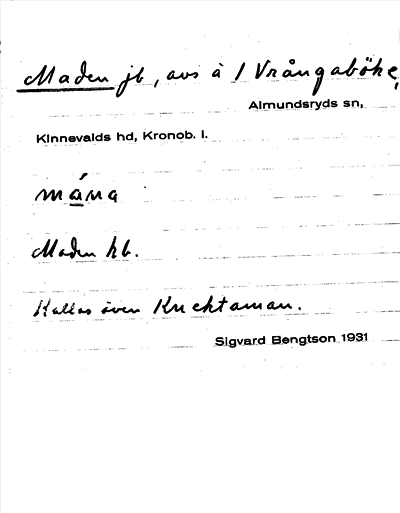 Maden jb, avs å 1 Vrångaböke,
Almundsryds sn,
Kinnevalds hd, Kronob. l.
mána
Maden hb.
Kallas även Knektaman.
Sigvard Bengtson 1931